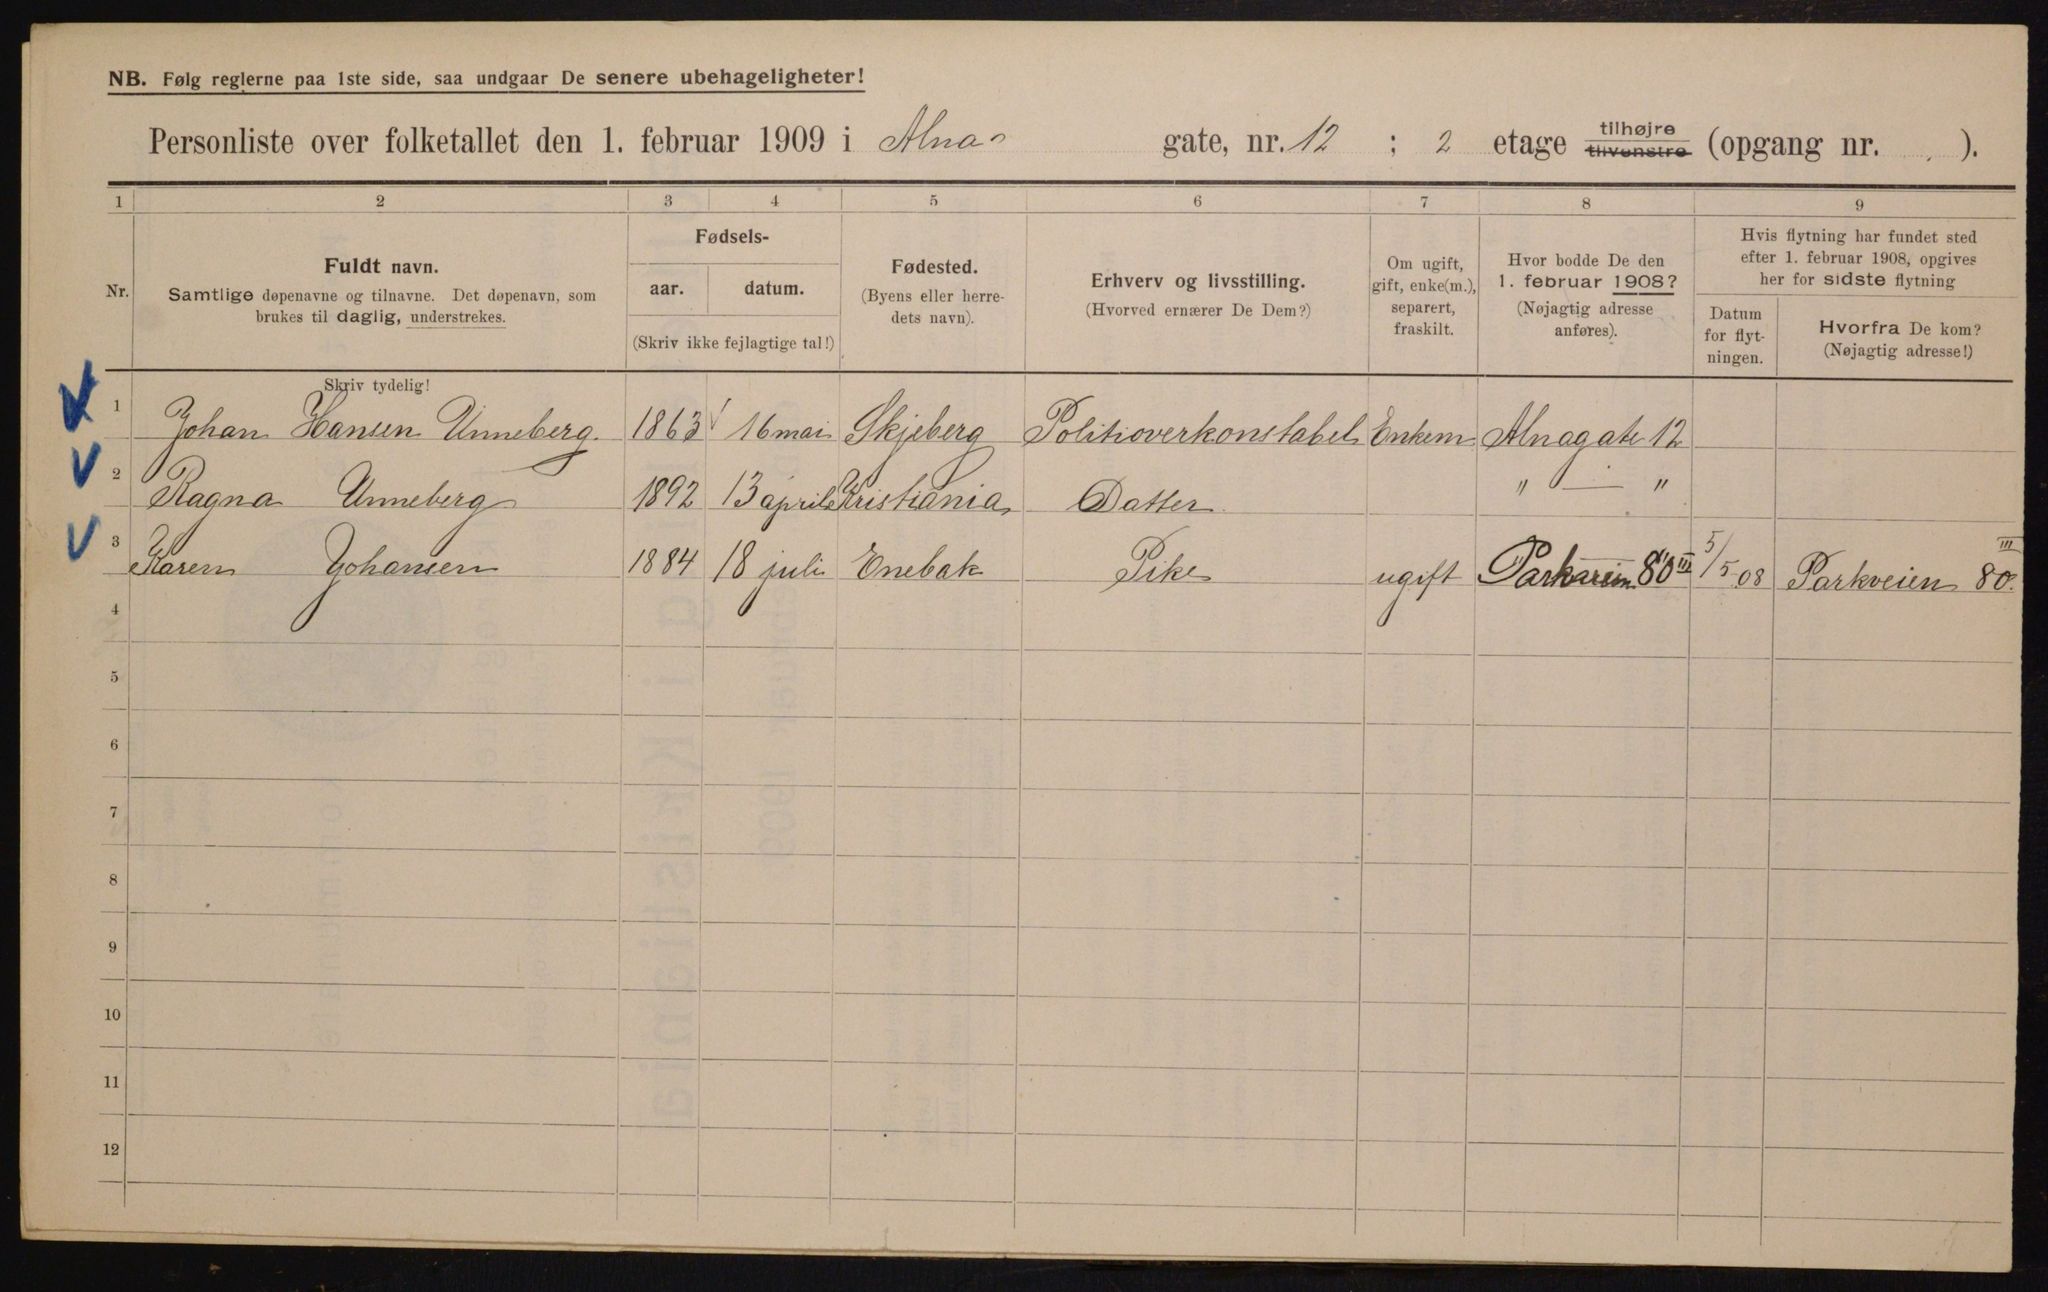 NB. Følg reglerne paa 1ste side, saa undgaar De senere ubehageligheter!
Personliste over folketallet den 1. februar 1909 i Alna- gate, nr. 12 ; 2 etage tilhøjre tilvenstre (opgang nr. ).
1 2 3 4 5 6 7 8 9
Nr.
Fuldt navn.
Samtlige døpenavne og tilnavne. Det døpenavn, som
brukes til daglig, understrekes.
Skriv tydelig!
Fødsels-
aar. datum.
(Skriv ikke fejlagtige tal!)
Fødested.
(Byens eller herre-
dets navn).
Erhverv og livsstilling.
(Hvorved ernærer De Dem?)
Om ugift,
gift, enke(m.),
separert,
fraskilt.
Hvor bodde De den
1. februar 1908?
(Nøjagtig adresse
anføres).
Hvis flytning har fundet sted
efter 1. februar 1908, opgives
her for sidste flytning
Datum
for flyt-
ningen.
Hvorfra De kom?
(Nøjagtig adresse!)
1 Johan Hansen Unneberg. 1863 16 mai Skjeberg Politioverkonstabel Enkem Alnagate 12
2 Ragna Unneberg 1892 13 april Kristiania Datter " — "
3 Karen Johansen 1884 18 juli Enebak Pike ugift Parkveien 80 III 5/5 08 Parkveien 80. III
4
5
6
7
8
9
10
11
12